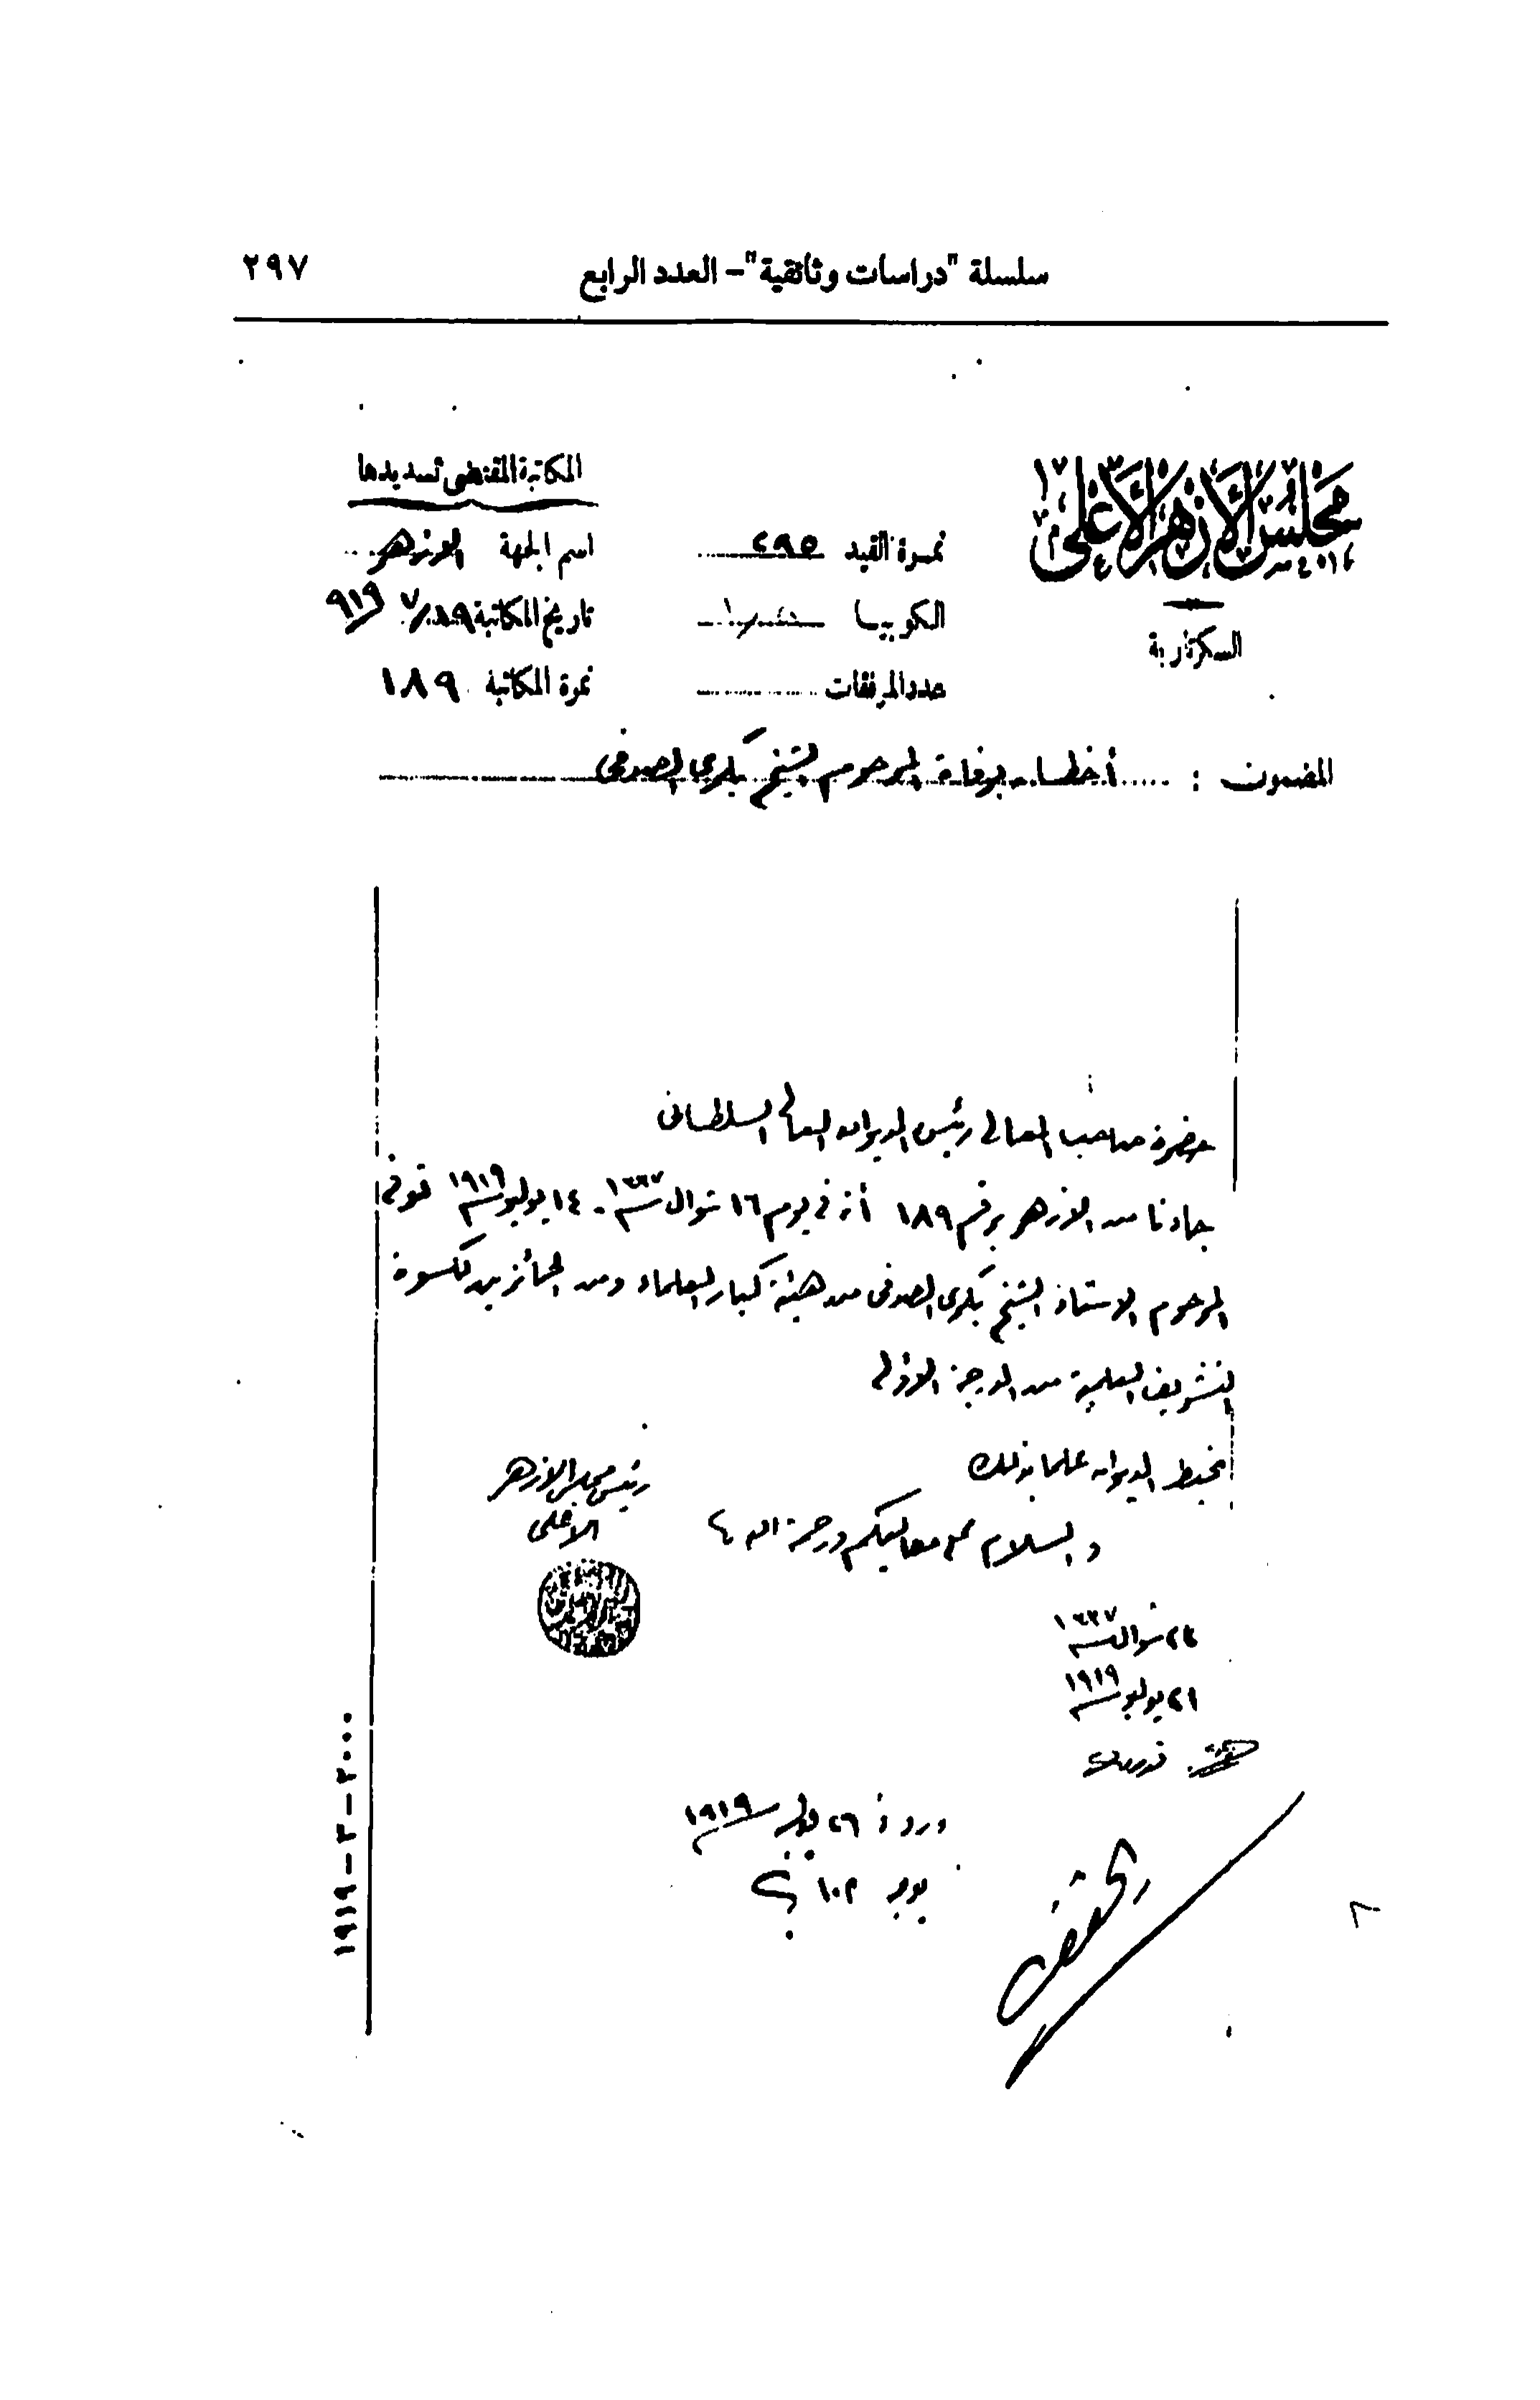 سلسلة "دراسات وثائقية"- العدد الرابع ٢٩٧
مجلس الأزهر الأعلى
السكرتارية
نمرة القيد ٢٩٥
الكوبيا
عدد المرفقات
المكاتبة المقتضى تسديدها
اسم الجهة الازهر
تاريخ المكاتبة ٩١٩
نمرة المكاتبة ١٨٩
المضمون : أخطار بوفاة المرحوم الشيخ بكرى الصدفى
حضرة صاحب المعالى رئيس الديوان العالى السلطانى
جاءنا من الازهر برقم ١٨٩ أنه فى يوم ١٦ شوال سنة ١٣٣٧ - ١٤ يوليو سنة ١٩١٩ توفى
المرحوم الاستاذ الشيخ بكرى الصدفى من هيئة كبار العلماء ومن الحائزين لكسوة
التشريف العلمية من الدرجة الاولى
نحيط الديوان علما بذلك
والسلام على معاليكم ورحمة الله
رئيس مجلس الازهر
الاعلى
٢٣ شوال سنة ١٣٣٧
٢١ يوليو سنة ١٩١٩
ورد فى ٢٦ يوليو سنة ١٩١٩
١٠٢
١٩١٩ - ٣ - ٣٠٠٠